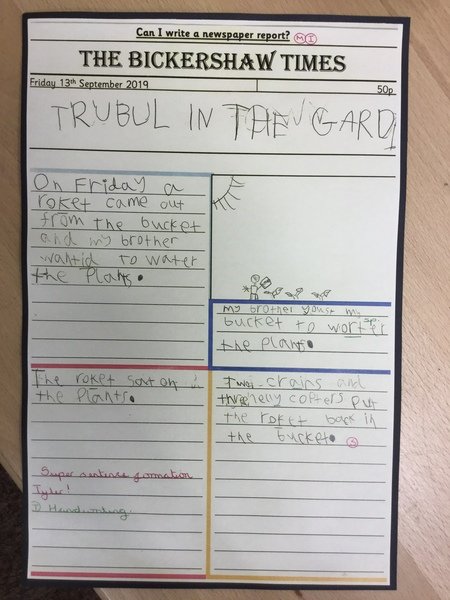 Can I write a newspaper report? M I
THE BICKERSHAW TIMES
Friday 13th September 2019 50p
TRUBUL IN THE GARD
On Friday a
roket came out
from the bucket
and my brother
wantid to water
the Plants.
my brother youst my
bucket to worter
the plants.
The roket sat on
the Plants.
Super sentence formation
Tyler!
D Handwriting.
Two crains and
three helly copters put
the roket back in
the bucket. S